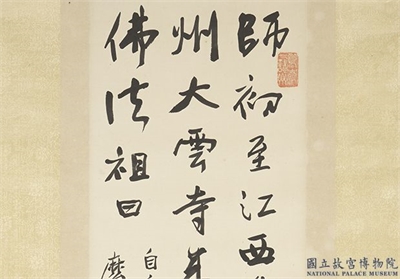 師初至江西
州大雲寺
佛法祖曰
自
國立故宮博物院
NATIONAL PALACE MUSEUM